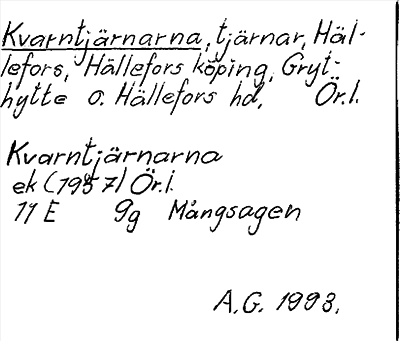 Kvarntjärnarna, tjärnar, Häl-
lefors, Hällefors köping, Gryt-
hytte o. Hällefors hd, Ör.l.
Kvarntjärnarna
ek (1957) Ör.l.
11 E 9g Mångsagen
A.G. 1993.